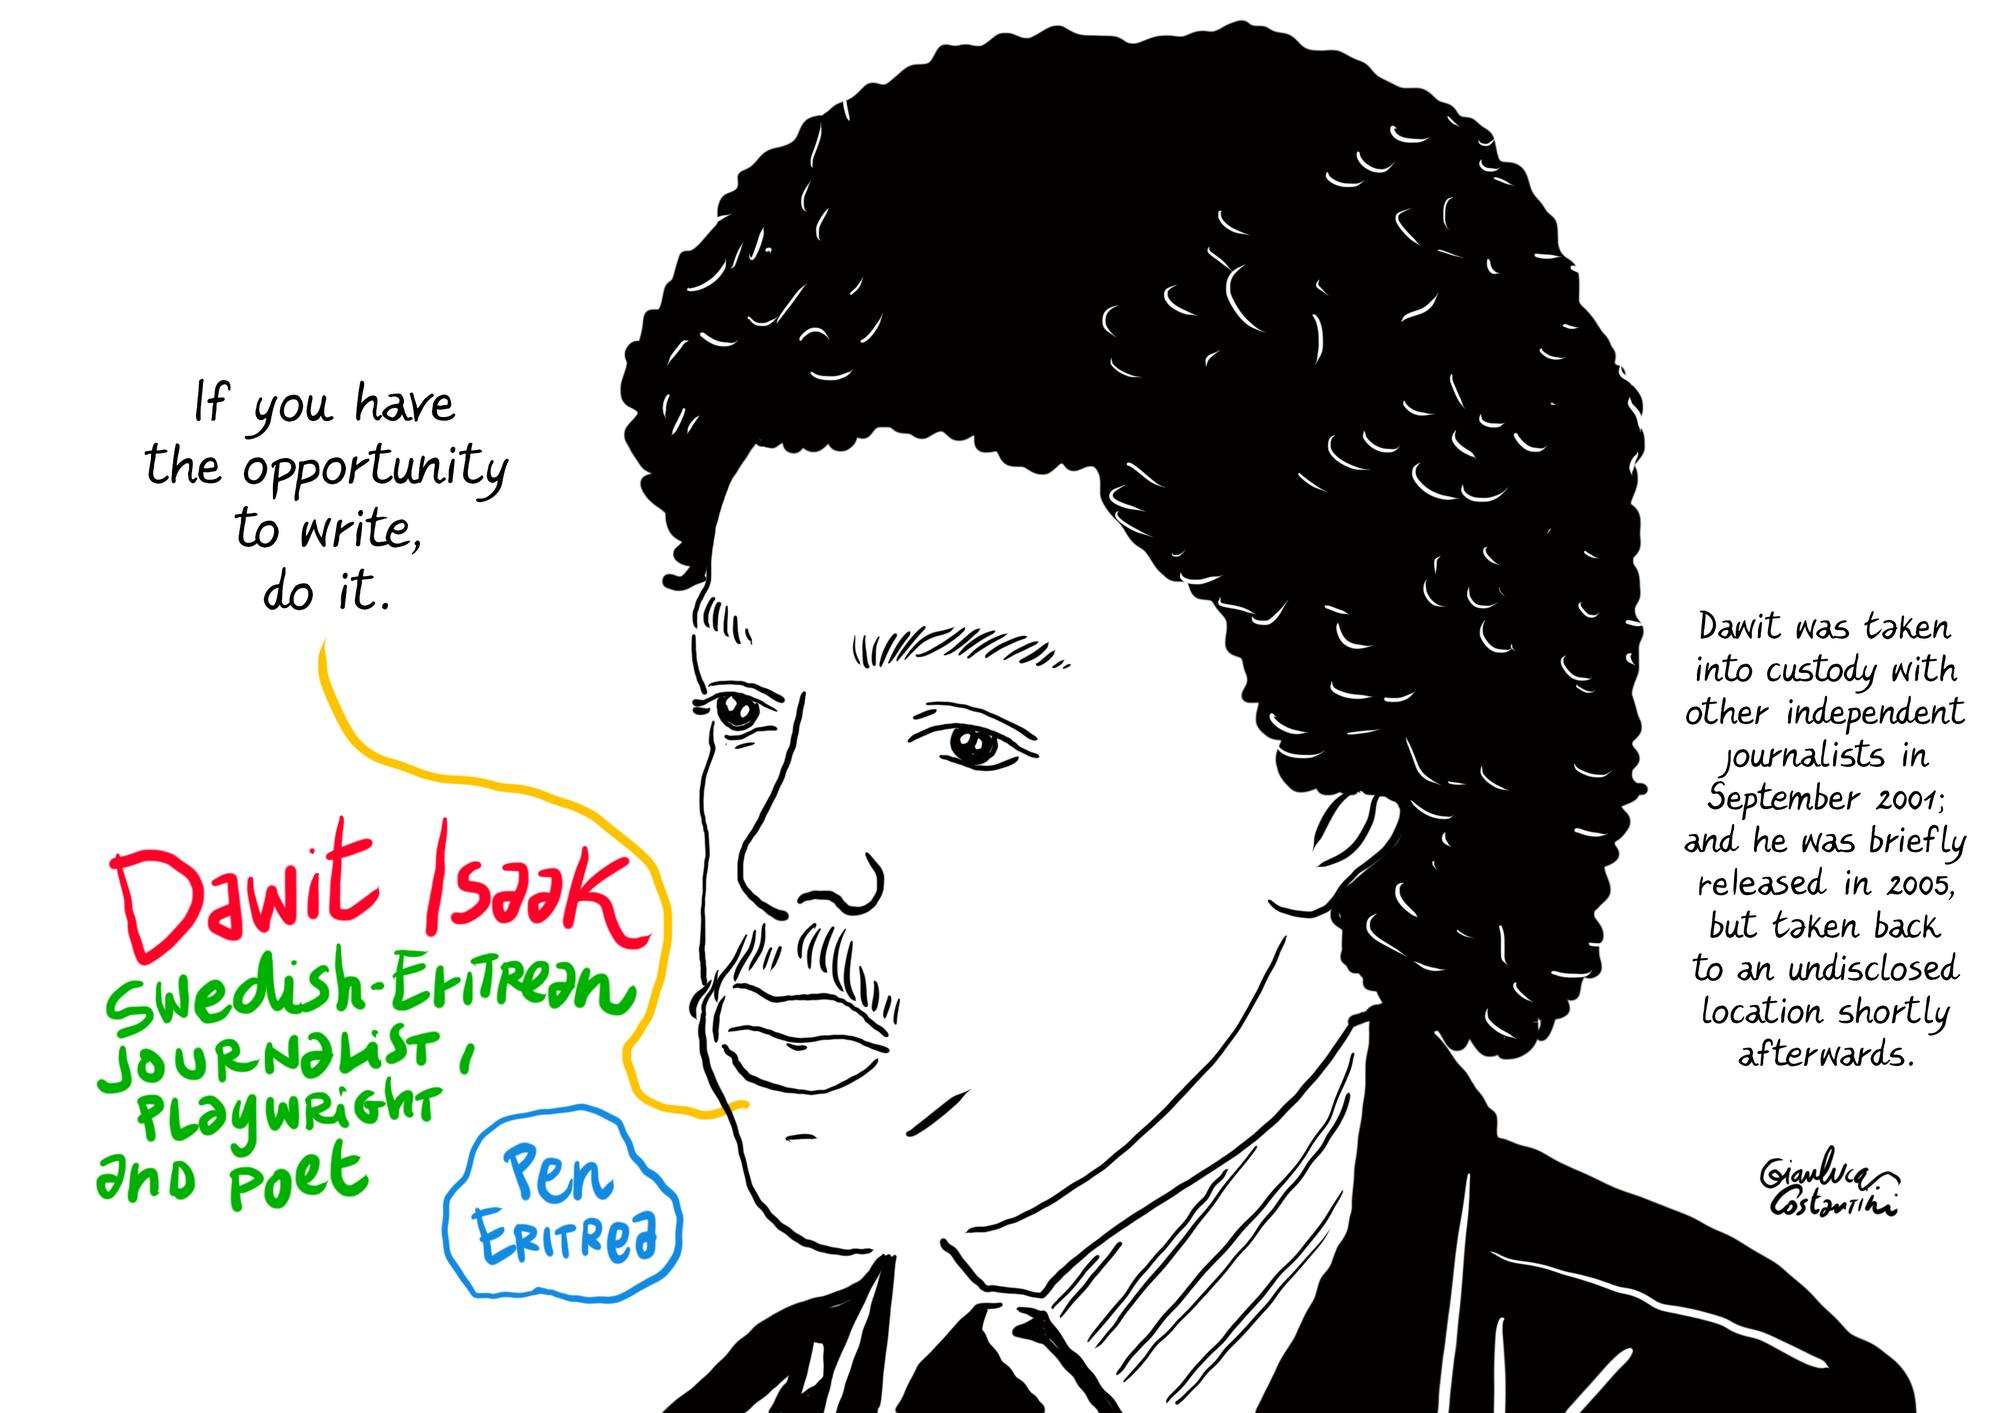 If you have
the opportunity
to write,
do it.
Dawit Isaak
Swedish-Eritrean
Journalist,
Playwright
and poet
Pen
Eritrea
Dawit was taken
into custody with
other independent
journalists in
September 2001;
and he was briefly
released in 2005,
but taken back
to an undisclosed
location shortly
afterwards.
Gianluca
Costantini